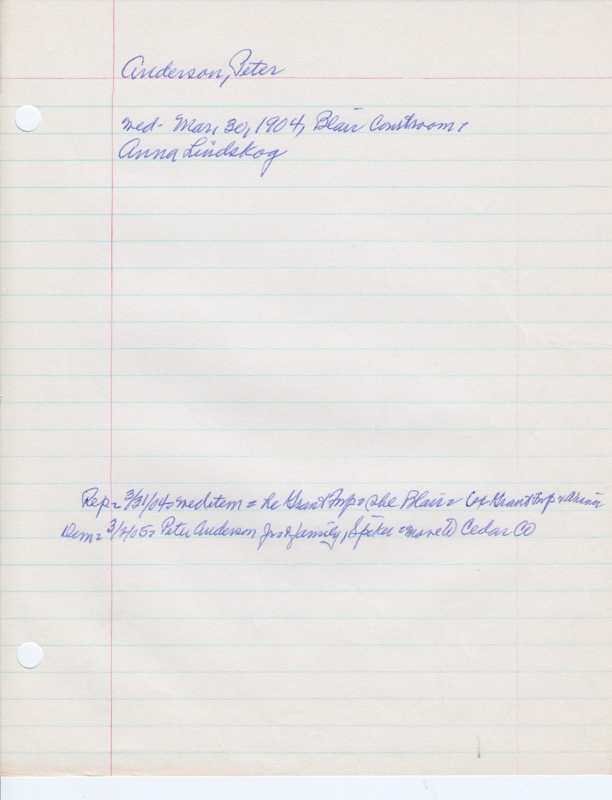 Anderson, Peter
wed- Mar, 30, 1904, Blair Courtroom,
Anna Lindskog
Rep= 3/31/04= wed item = he Grant Twp= she Blair= Grant Twp
Dem= 3/2/05= Peter Anderson Jr & family, Spiker = move to Cedar Co